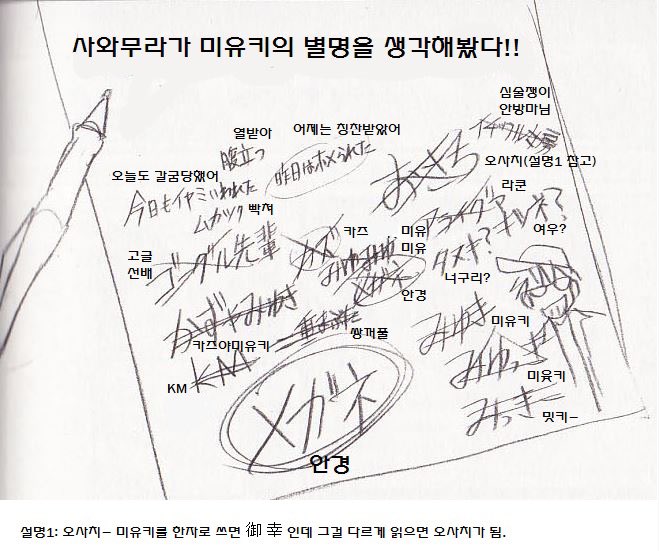 사와무라가 미유키의 별명을 생각해봤다!!
심술쟁이
안방마님
열받아
腹立つ
어제는 칭찬받았어
昨日はホメられた
오늘도 갈굼당했어
今日もイヤミいわれた
ムカツク
빡쳐
오사치(설명1 참고)
おさち
라쿤
アライグマ
タヌキ?
キツネ?
여우?
너구리?
고글
선배
ゴーグル先輩
카즈
カズ
미유
미유
みゆみゆ
メガネ
안경
かずやみゆき
카즈야미유키
二重まぶた
쌍꺼풀
KM
KM
みゆき
미유키
みゆっき
미윳키
みっきー
밋키-
メガネ
안경
설명1: 오사치- 미유키를 한자로 쓰면 御 幸 인데 그걸 다르게 읽으면 오사치가 됨.